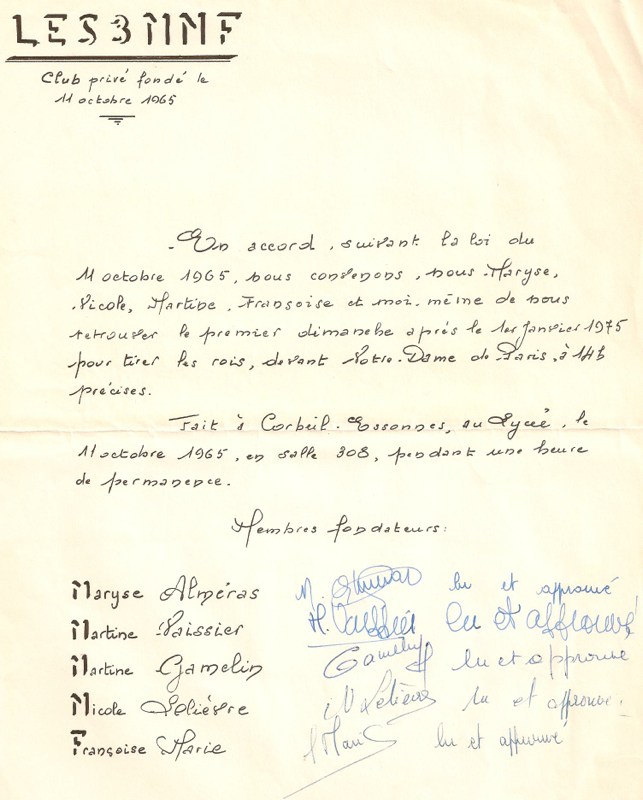 LES 3 MNF
Club privé fondé le
11 octobre 1965
En accord, suivant la loi du
11 octobre 1965, nous convenons, nous Maryse,
Nicole, Martine, Françoise et moi-même de nous
retrouver le premier dimanche après le 1er Janvier 1975
pour tirer les rois, devant Notre-Dame de Paris, à 14h
précises.
Fait à Corbeil-Essonnes, au Lycée, le
11 octobre 1965, en salle 308, pendant une heure
de permanence.
Membres fondateurs:
Maryse Alméras lu et approuvé
Martine Vaissier lu et approuvé
Martine Gamelin Gamelin lu et approuvé
Nicole Lelièvre N Lelièvre lu et approuvé.
Françoise Marie Marie lu et approuvé